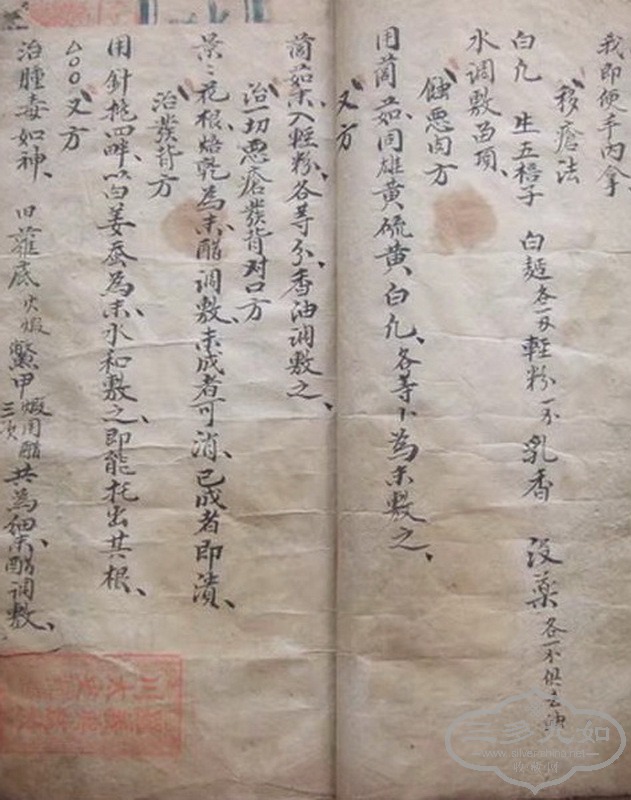 我即便手内拿
移瘡法
白凢 生五棓子 白麺各一 輕粉一分 乳香 没薬各一分俱去油
水调敷百项、
蝕悪肉方
用䓡茹、同雄黄、硫黄、白凢、各等卜為末敷之、
又方
䓡茹末入輕粉、各等分、香油调敷之、
治一切悪瘡發背对口方
景〻花根、焙乾為末、醋调敷、未成者可消、已成者即潰、
治發背方
用針挑四畔、以白姜蚕為末、水和敷之、即能托出其根、
又方
治腫毒如神、 旧 底火煅 鱉甲煅用醋三次 共為細末、醋调敷、
三多九如
www.silvercoins.net
收藏网